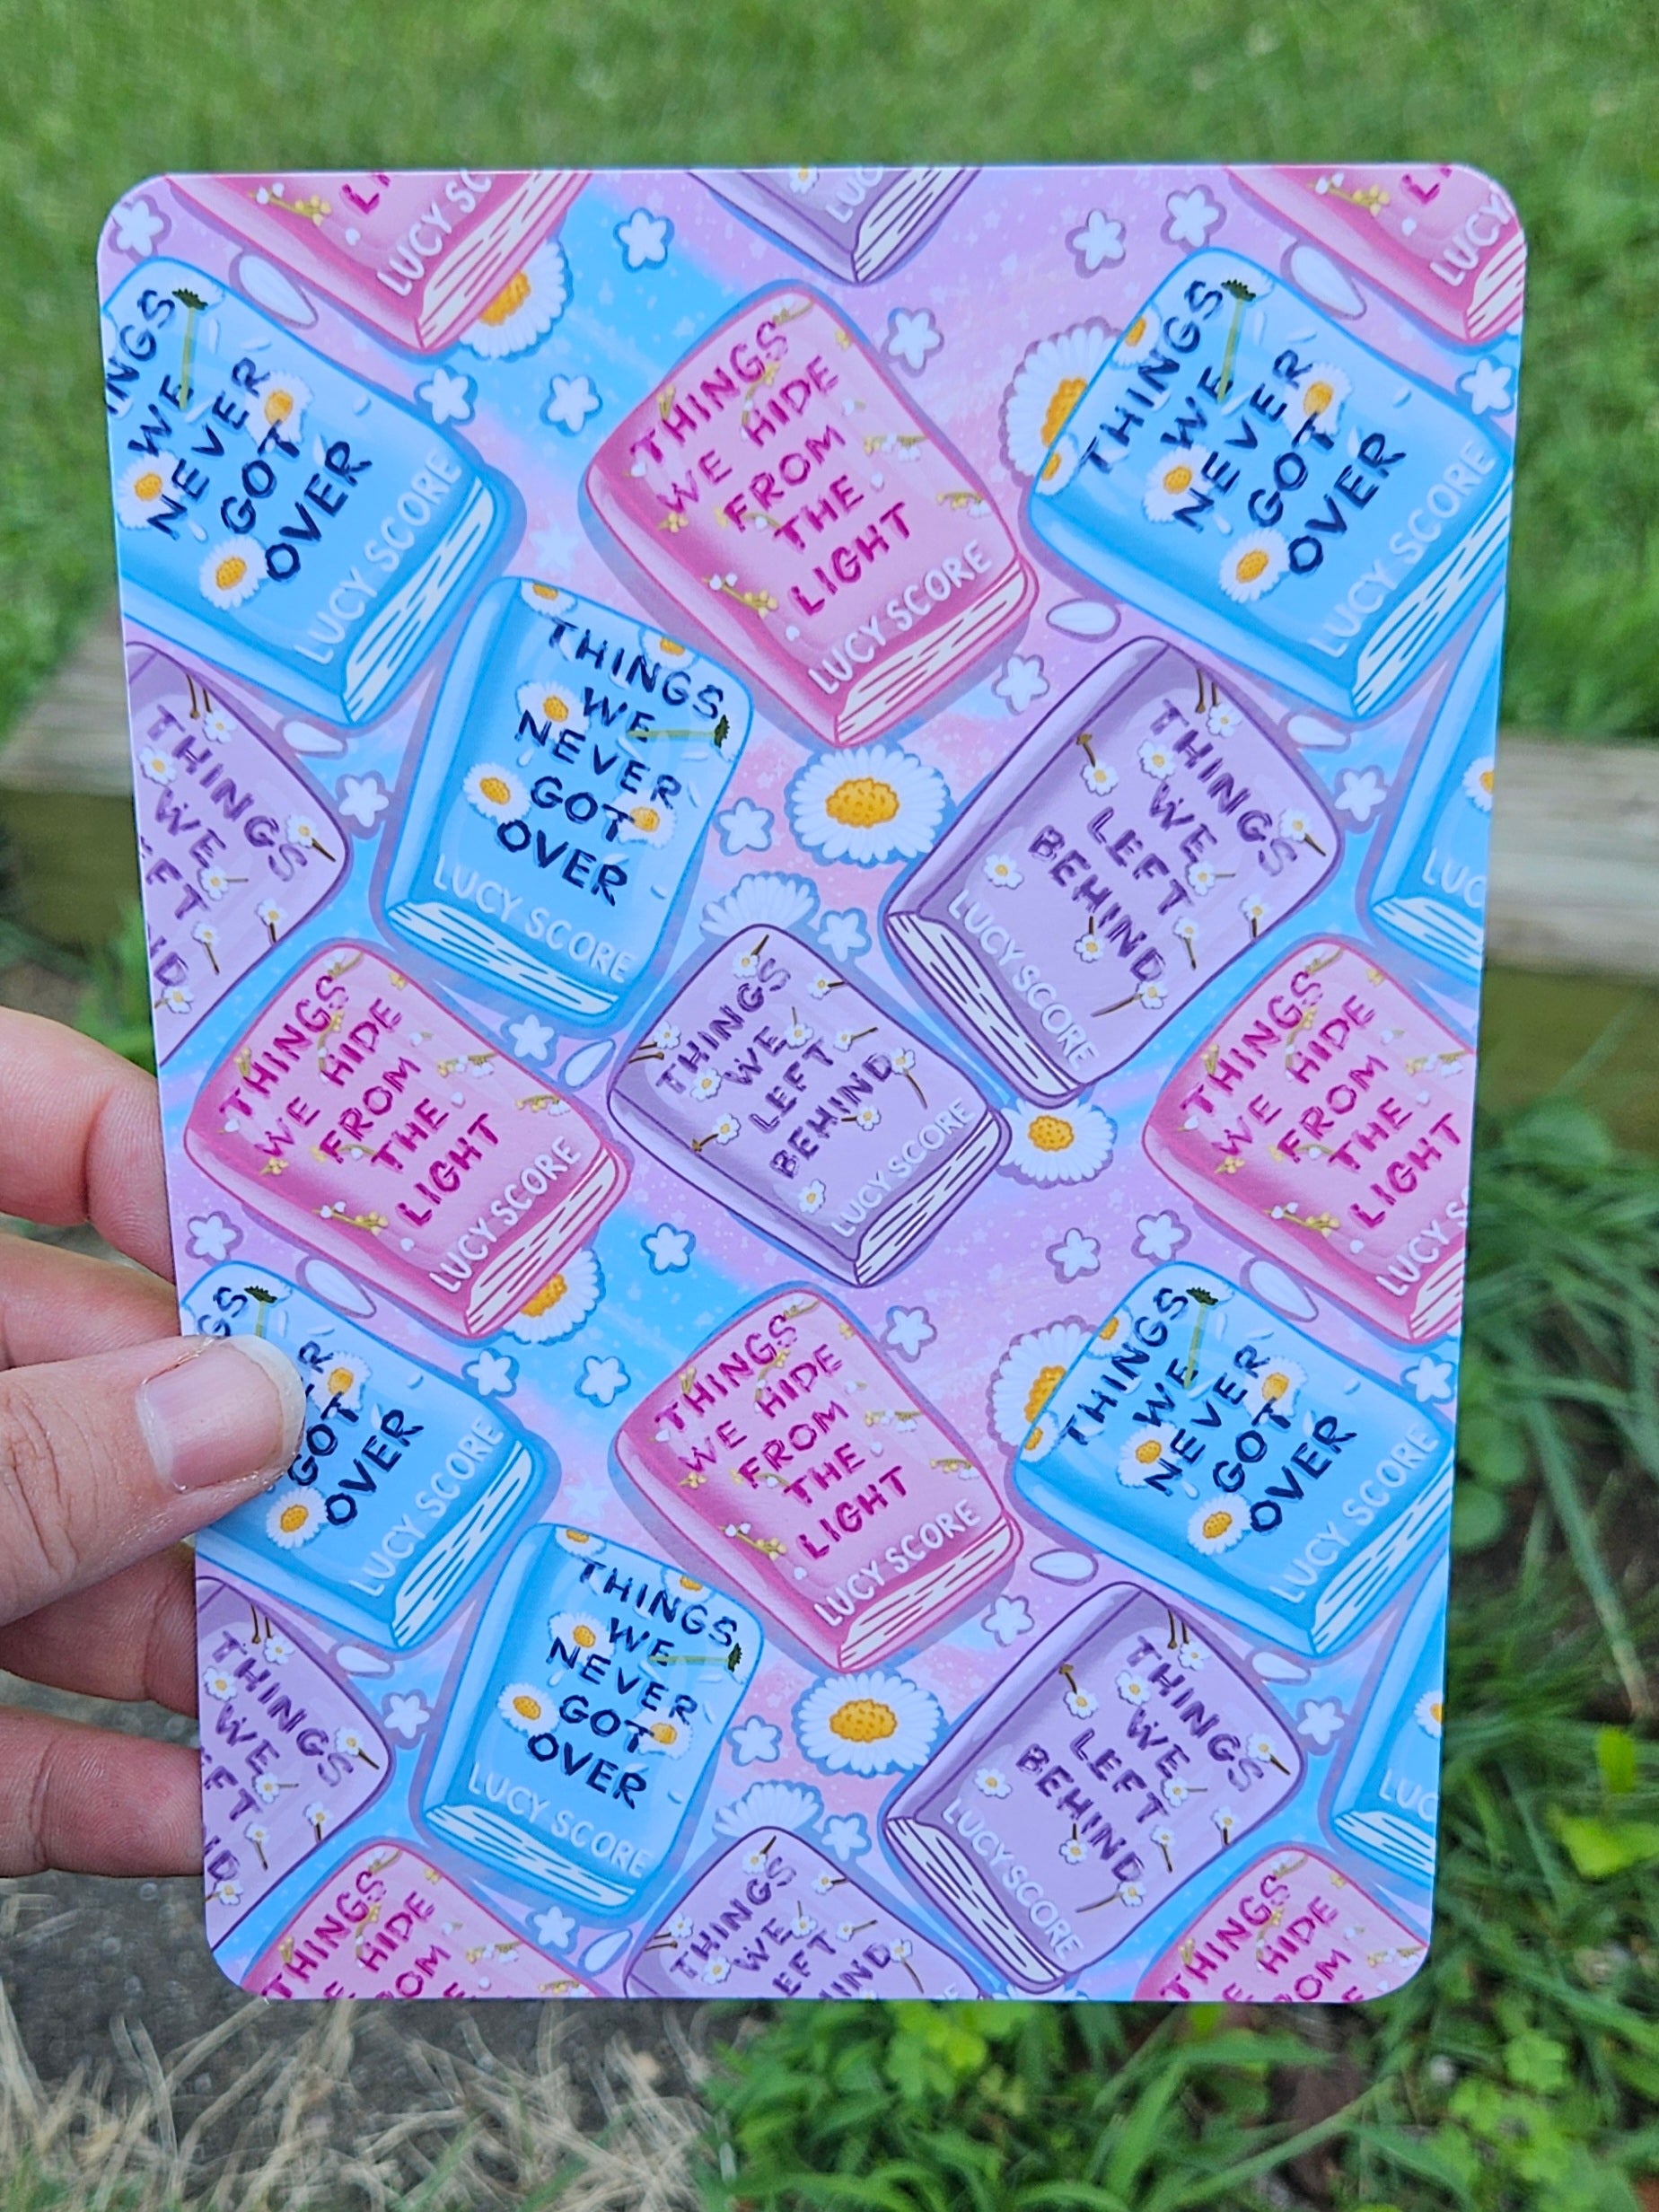 LI
LUCY SC
LUC
LI
LUCY
INGS
WE
NEVER
GOT
OVER
LUCY SCORE
THINGS
WE HIDE
FROM
THE
LIGHT
LUCY SCORE
THINGS
WE
NEVER
GOT
OVER
LUCY SCORE
THINGS
WE
NEVER
GOT
OVER
LUCY SCORE
THINGS
WE
LEFT
BEHIND
LUCY SCORE
THINGS
WE
EFT
ND
LUC
THINGS
WE HIDE
FROM
THE
LIGHT
LUCY SCORE
THINGS
WE
LEFT
BEHIND
LUCY SCORE
THINGS
WE HIDE
FROM
THE
LIGHT
LUCY S
GS
R
GOT
OVER
LUCY SCORE
THINGS
WE HIDE
FROM
THE
LIGHT
LUCY SCORE
THINGS
WE
NEVER
GOT
OVER
LUCY SCORE
THINGS
WE
NEVER
GOT
OVER
LUCY SCORE
THINGS
WE
LEFT
BEHIND
LUCY SCORE
THINGS
WE
FT
ND
LUC
THINGS
E HIDE
ROM
THINGS
WE
EFT
IND
THINGS
E HIDE
ROM